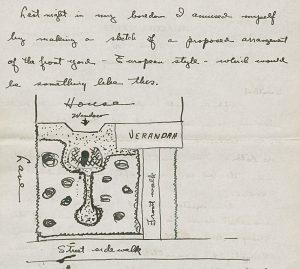 Last night in my boredom I amused myself
by making a sketch of a proposed arrangement
of the front yard - European style - which would
be something like this.
House
Window
VERANDAH
Lane
Front walk
Street side walk